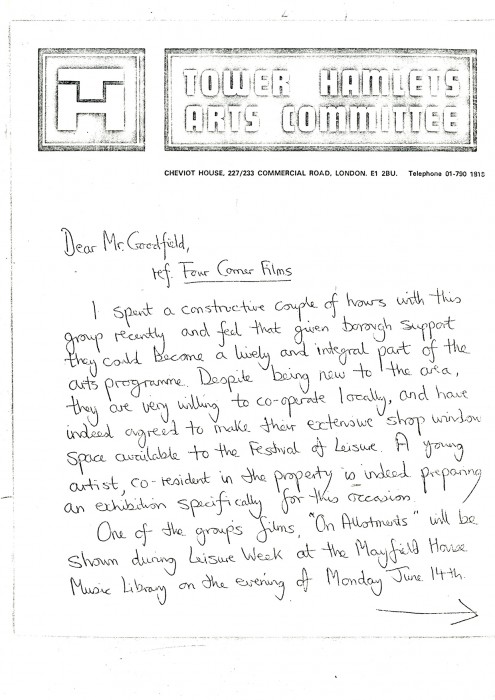 TH
TOWER HAMLETS
ARTS COMMITTEE
CHEVIOT HOUSE, 227/233 COMMERCIAL ROAD, LONDON. E1 2BU. Telephone 01-790 1818
Dear Mr. Goodfield,
ref. Four Corner Films
I spent a constructive couple of hours with this
group recently and feel that given borough support
they could become a lively and integral part of the
arts programme. Despite being new to the area,
they are very willing to co-operate locally, and have
indeed agreed to make their extensive shop window
space available to the Festival of Leisure. A young
artist, co-resident in the property is indeed preparing
an exhibition specifically for this occasion.
One of the group's films, "On Allotments" will be
shown during Leisure Week at the Mayfield House
Music Library on the evening of Monday June 14th.